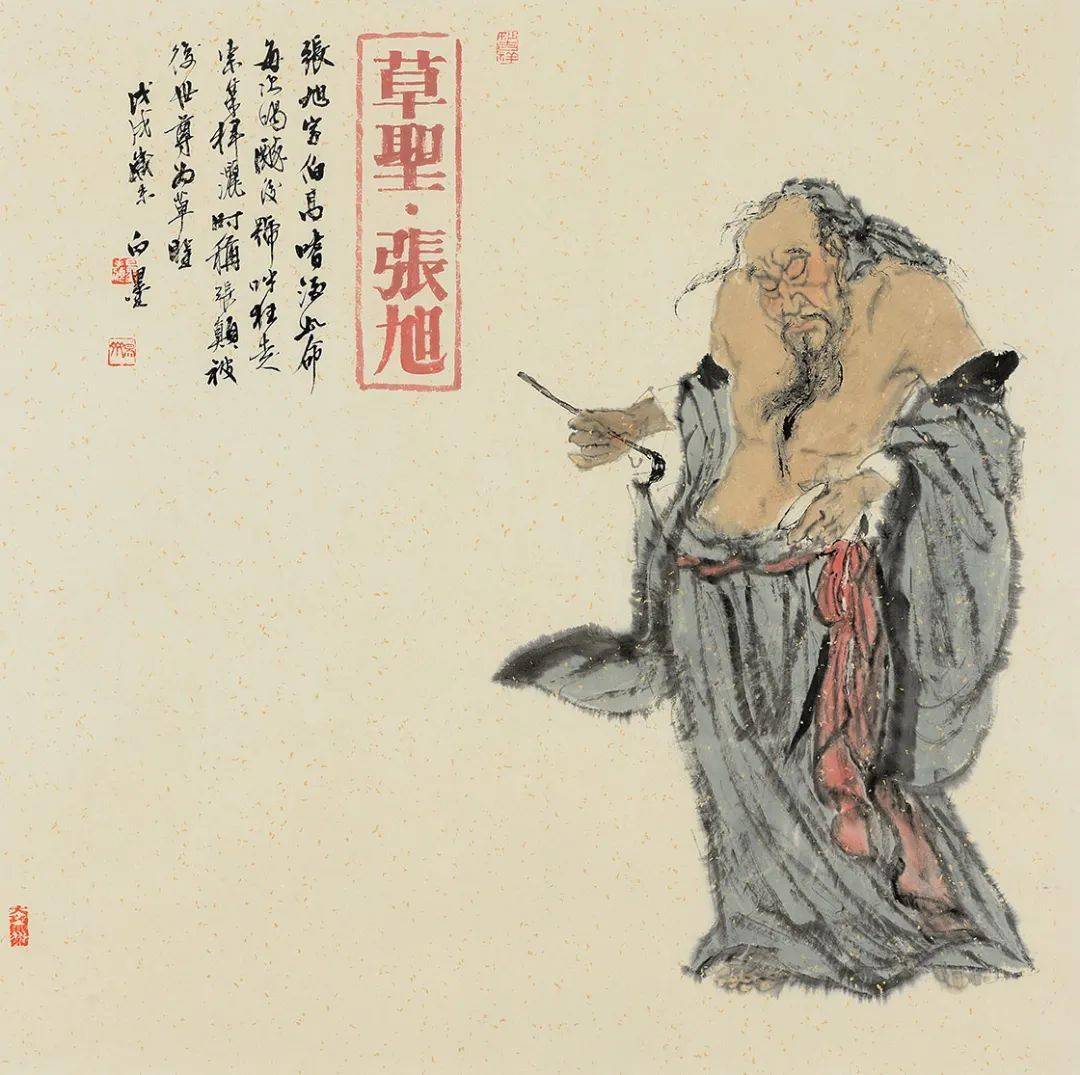 草聖·張旭
張旭字伯高嗜酒如命
每次喝醉後號呼狂走
索筆揮灑時稱張顛被
後世尊為草聖
戊戌歲末 白墨